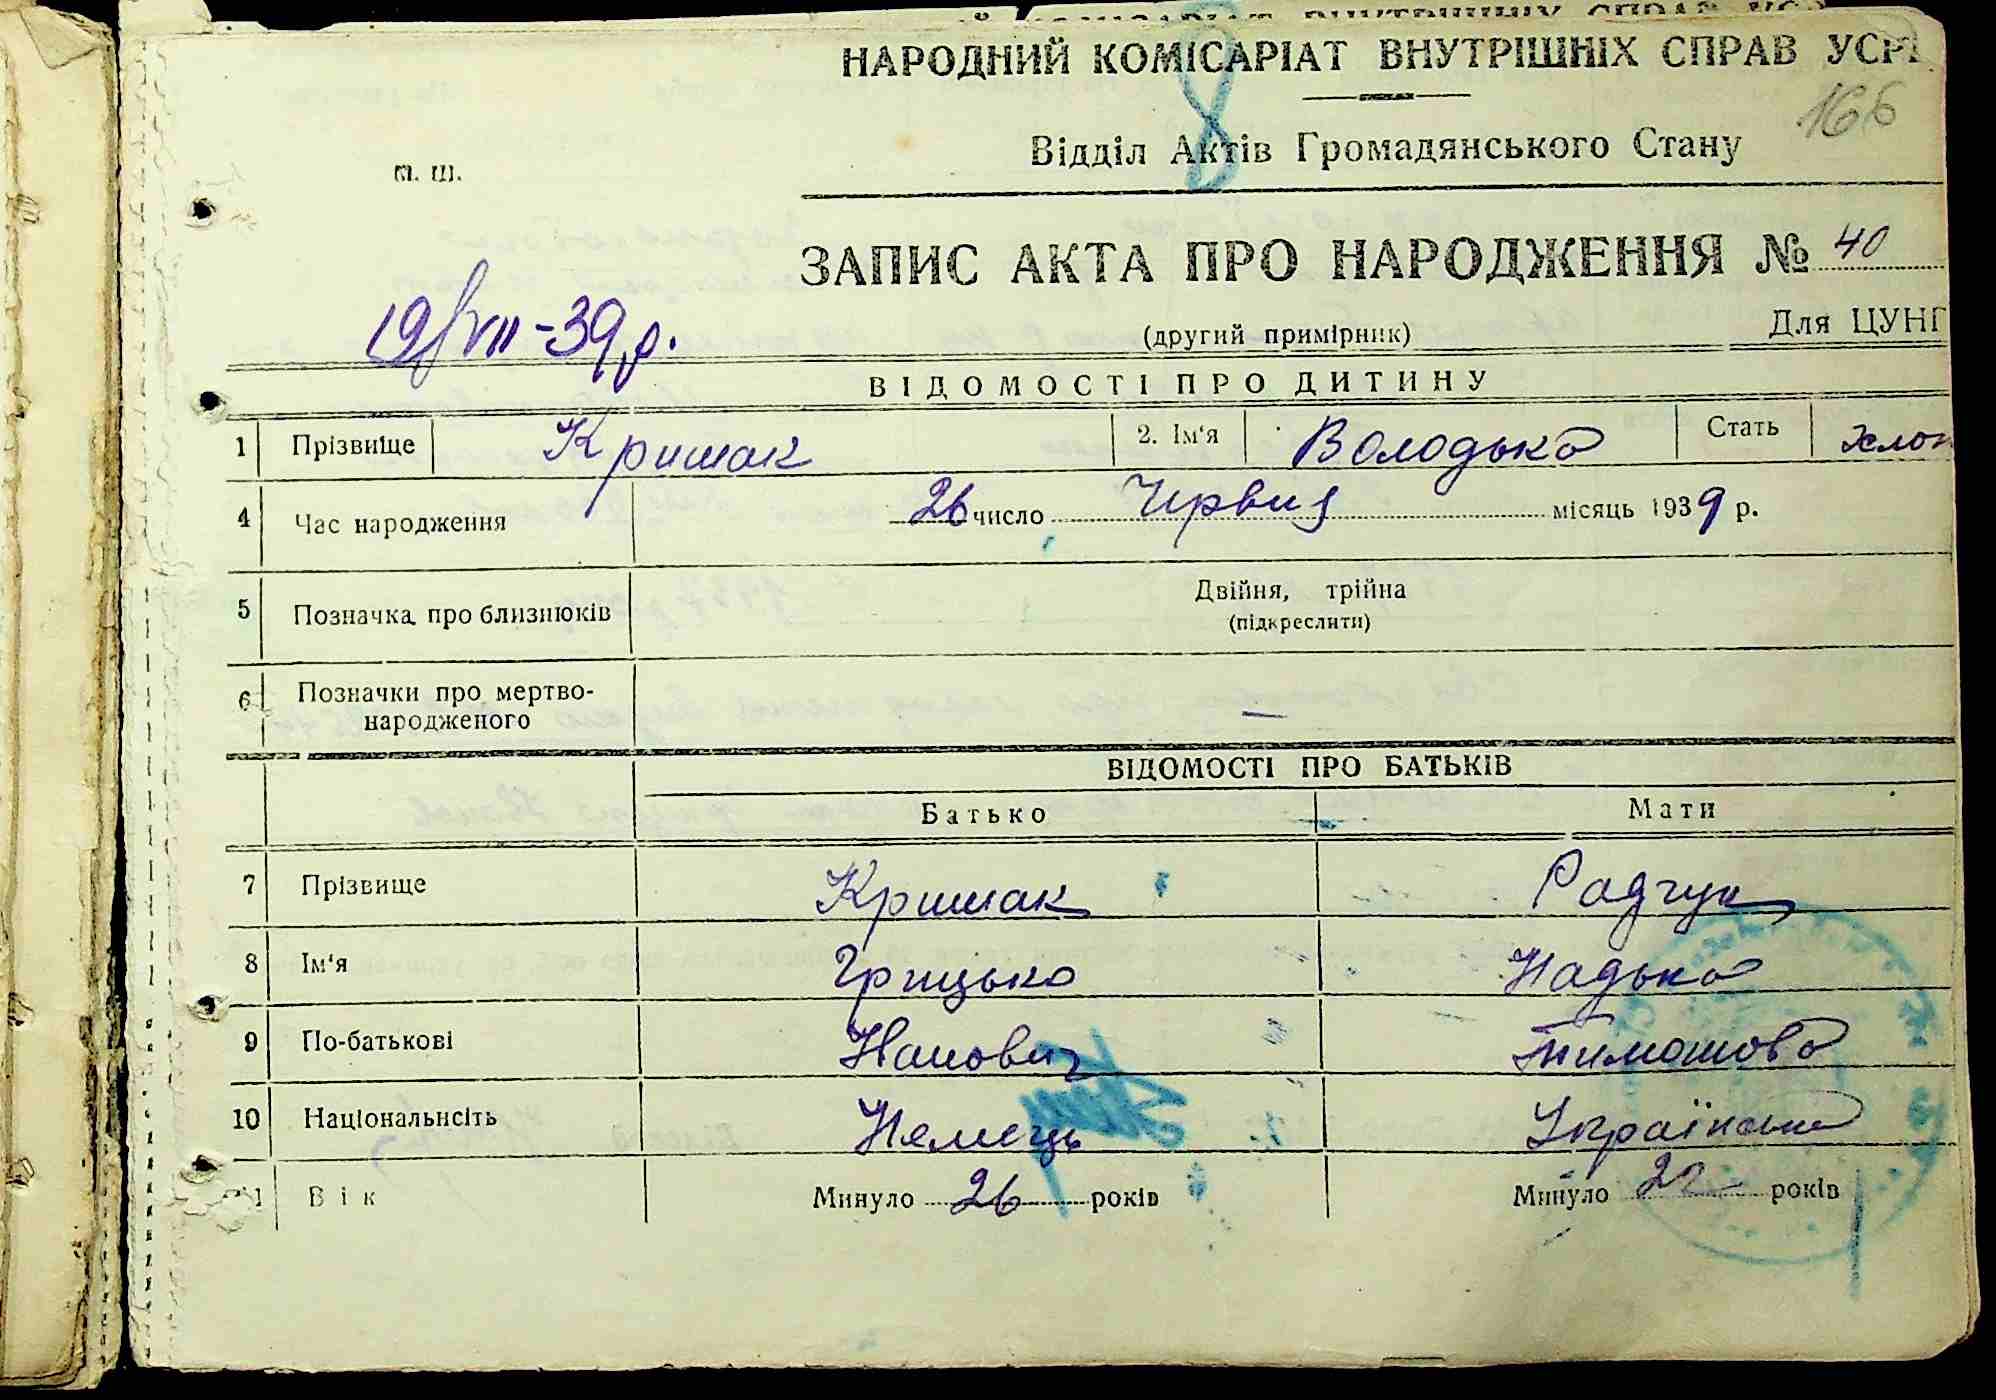 НАРОДНИЙ КОМІСАРІАТ ВНУТРІШНІХ СПРАВ УСРР
8
166
Відділ Актів Громадянського Стану
ЗАПИС АКТА ПРО НАРОДЖЕННЯ № 40
19/VII-39 р.
(другий примірник)
Для ЦУНГ
ВІДОМОСТІ ПРО ДИТИНУ
1 Прізвище Кришак 2. Ім'я Володька Стать хлоп
4 Час народження 26 число Червня місяць 1939 р.
5 Позначка про близнюків Двійня, трійна
(підкреслити)
6 Позначки про мертво-
народженого —
ВІДОМОСТІ ПРО БАТЬКІВ
Батько Мати
7 Прізвище Кришак Радчук
8 Ім'я Грицько Надька
9 По-батькові Тимошова
10 Національність Немець Українка
11 Вік Минуло 26 років Минуло років